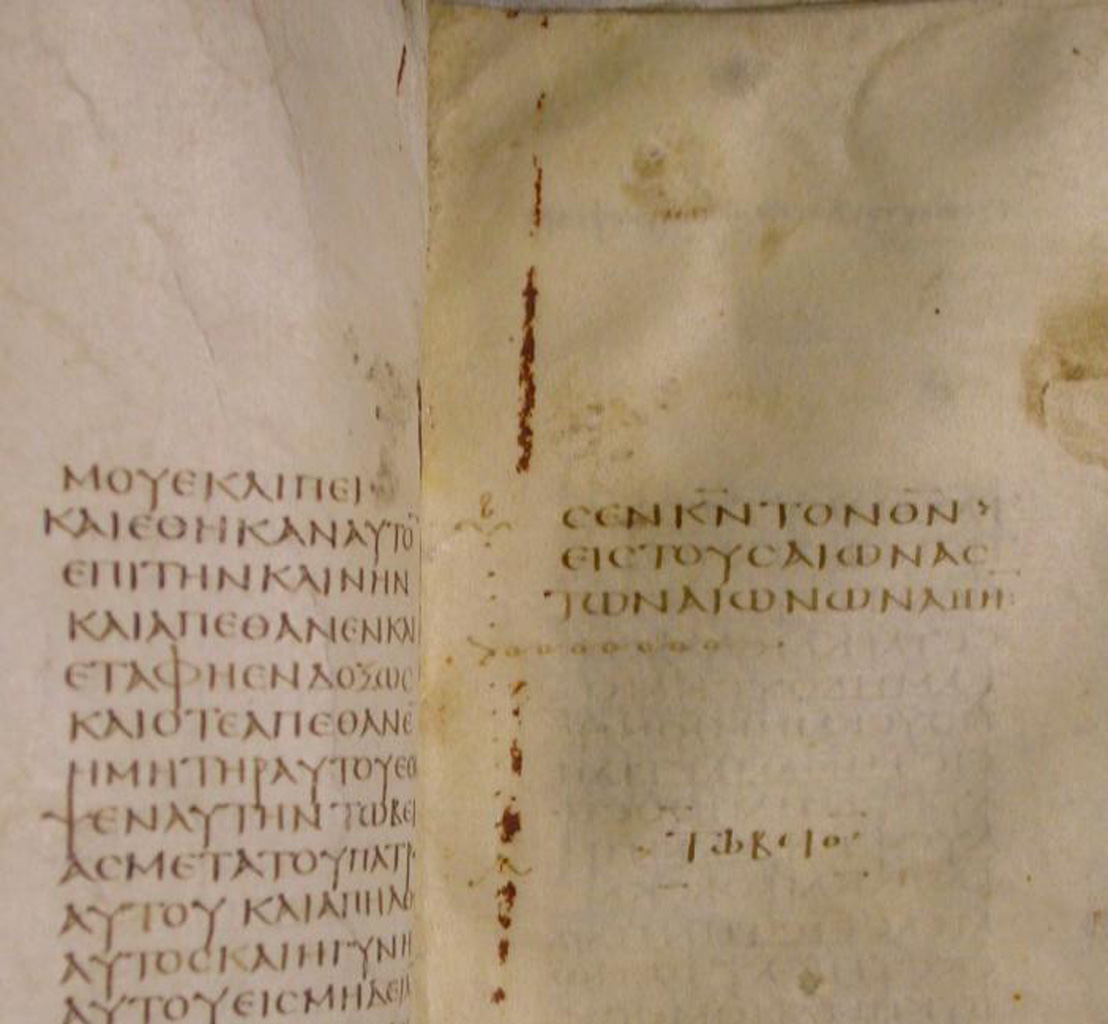 ΜΟΥΕΚΑΙΠΕΙ
ΚΑΙΕΘΗΚΑΝΑΥΤΟ̅
ΕΠΙΤΗΝΚΛΙΝΗΝ
ΚΑΙΑΠΕΘΑΝΕΝΚΑΙ
ΕΤΑΦΗΕΝΔΟΞΩϹ
ΚΑΙΟΤΕΑΠΕΘΑΝΕ
ΗΜΗΤΗΡΑΥΤΟΥΕΘΑ
ΨΕΝΑΥΤΗΝΤΩΒΕΙ
ΑϹΜΕΤΑΤΟΥΠΑΤΡ
ΑΥΤΟΥΚΑΙΑΠΗΛΘ
ΑΥΤΟϹΚΑΙΗΓΥΝΗ
ΑΥΤΟΥΕΙϹΜΗΔΕΙΑ
ϹΕΝΚ̅Ν̅ΤΟΝΘ̅Ν̅
ΕΙϹΤΟΥϹΑΙΩΝΑϹ
ΤΩΝΑΙΩΝΩΝΑΜΗ
ΤΩΒΕΙΘ